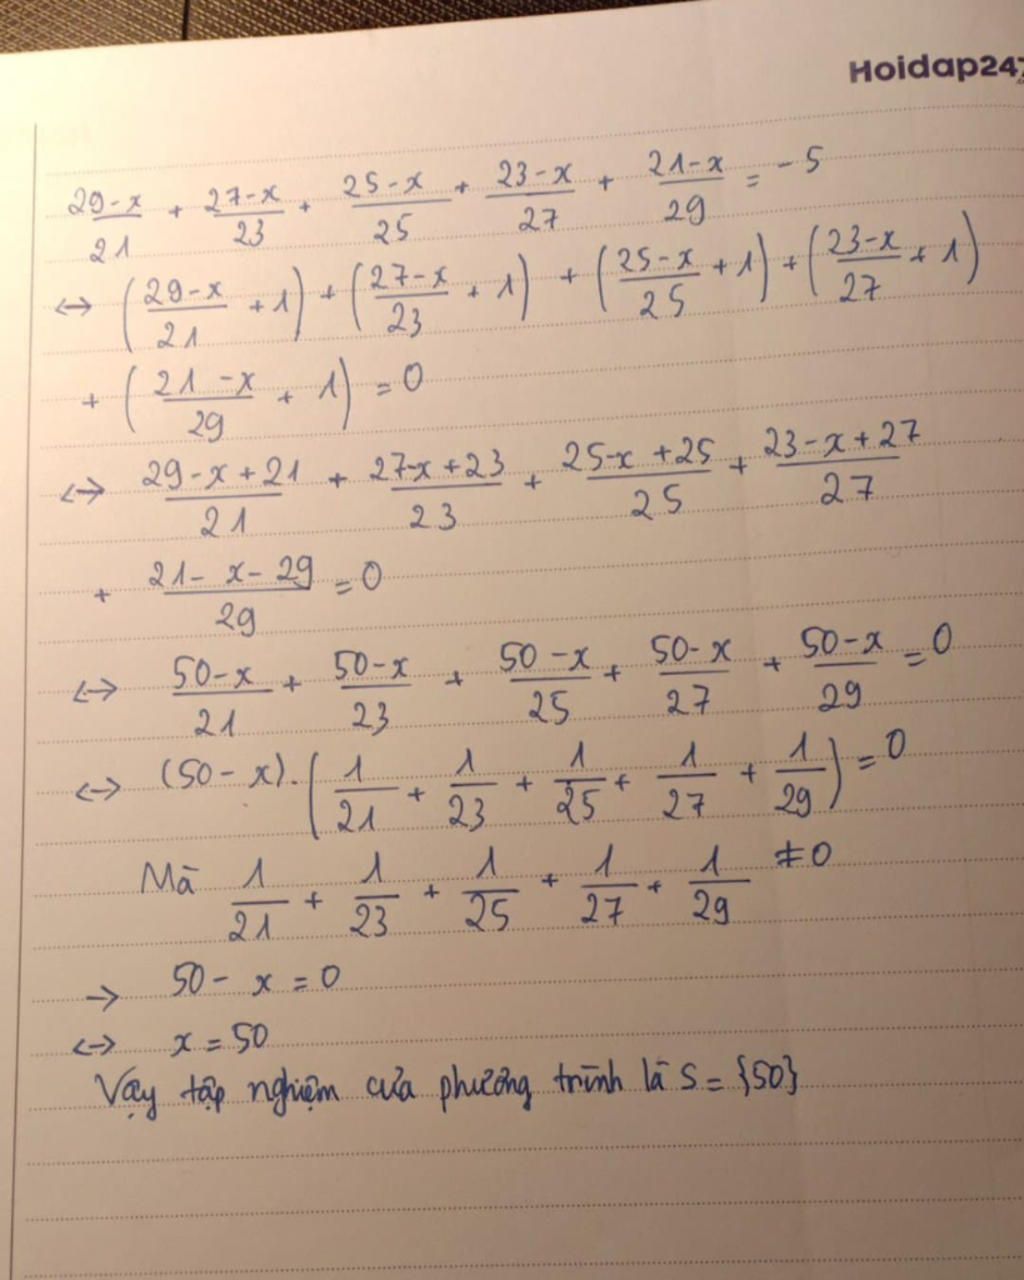 Hoidap247
(29-x)/21 + (27-x)/23 + (25-x)/25 + (23-x)/27 + (21-x)/29 = -5
↔ ((29-x)/21 + 1) + ((27-x)/23 + 1) + ((25-x)/25 + 1) + ((23-x)/27 + 1)
+ ((21-x)/29 + 1) = 0
↔ (29-x+21)/21 + (27-x+23)/23 + (25-x+25)/25 + (23-x+27)/27
+ (21-x-29)/29 = 0
↔ (50-x)/21 + (50-x)/23 + (50-x)/25 + (50-x)/27 + (50-x)/29 = 0
↔ (50-x).(1/21 + 1/23 + 1/25 + 1/27 + 1/29) = 0
Mà 1/21 + 1/23 + 1/25 + 1/27 + 1/29 ≠ 0
→ 50 - x = 0
↔ x = 50
Vậy tập nghiệm của phương trình là S = {50}